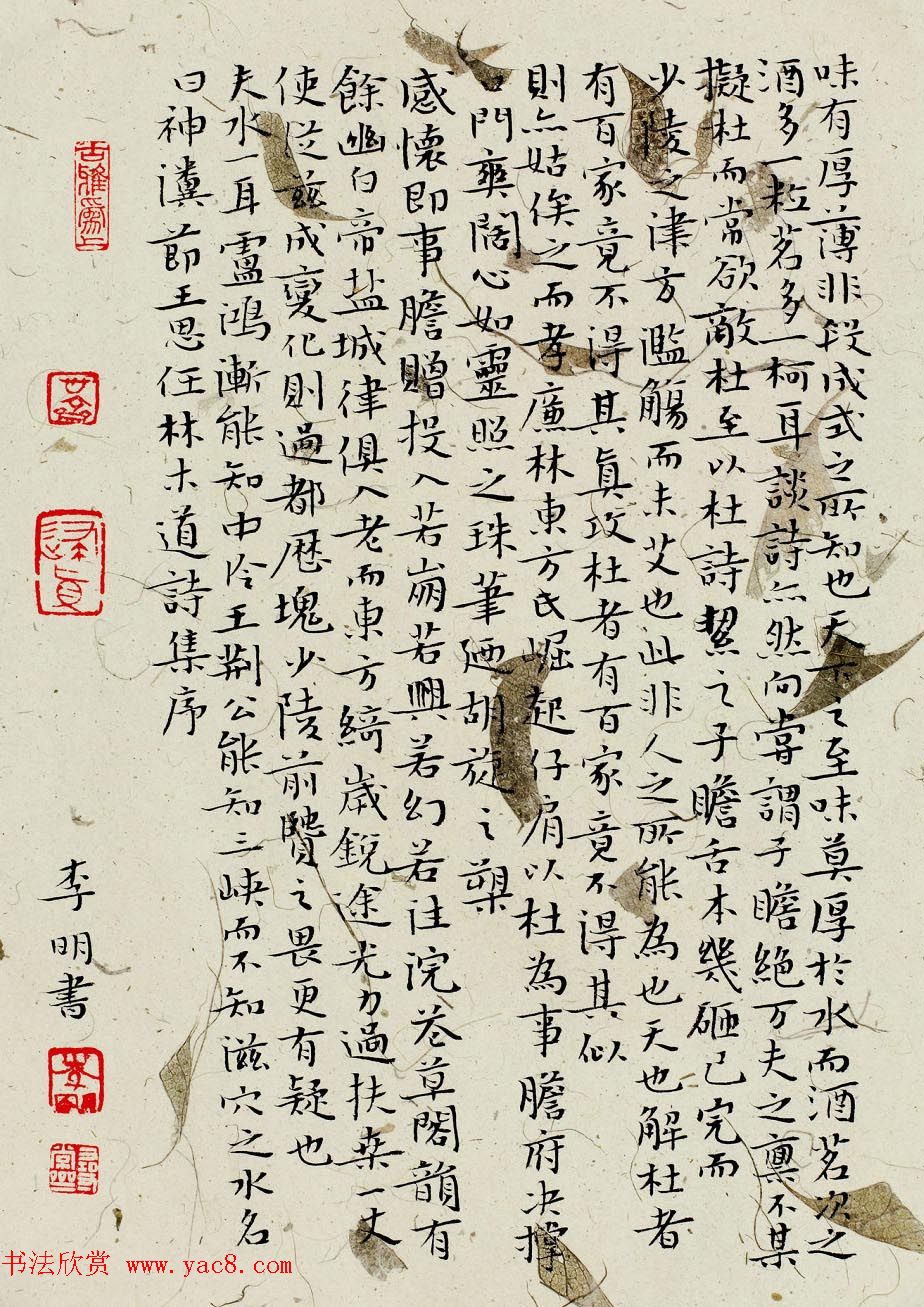 味有厚薄非段成式之所知也天下之至味莫厚於水而酒茗次之
酒多一粒茗多一柯耳談詩亦然向嘗謂子瞻絕万夫之稟不某
擬杜而常欲敵杜至以杜詩絜之子瞻舌本幾砸已完而
少陵之津方濫觴而未艾也此非人之所能為也天也解杜者
有百家竟不得其真攻杜者有百家竟不得其似
則亦姑俟之而孝廉林東方氏崛起仔肩以杜為事膽府决撑
口門爽闊心如靈照之珠筆廼胡旋之槊
感懷即事贈投入若崩若興若幻若注浣花草閣韻有
餘幽白帝盐城律俱入老而東方綺歲銳途光力過扶桒一丈
使從兹成變化則過都歷塊少陵前賢之畏更有疑也
夫水一耳盧鴻漸能知中泠王荆公能知三峽而不知滋穴之水名
曰神瀵節王思任林木道詩集序
李明書
书法欣赏 www.yac8.com